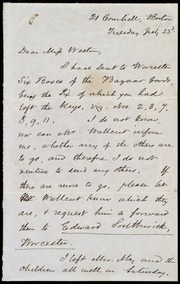 21 Cornhill, Boston
Tuesday July 23d
Dear Miss Weston,
I have sent to Worcester
Six Boxes of the Bazaar Goods,
being the Six of which you had
left the Keys, viz. Nos. 2, 3, 7,
8, 9, 11. I do not know,
nor can Mr. Wallcut inform
me, whether any of the others are
to go, and therefore I do not
venture to send any others. If
there are more to go, please let
Mr Wallcut know which they
are, & request him to forward
them to Edward Southwick,
Worcester.
I left Miss. May, and the
children all well on Saturday,